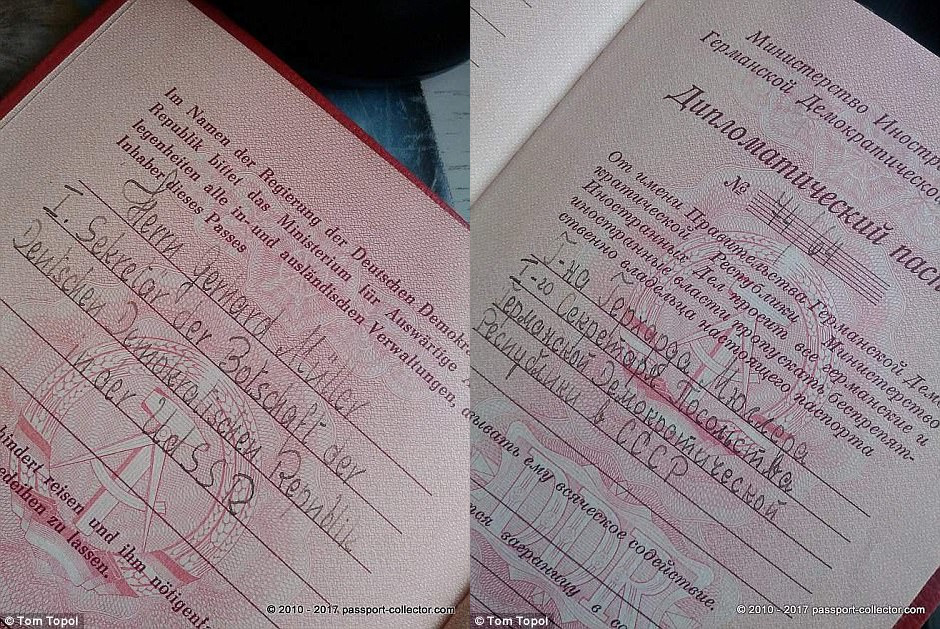 Im Namen der Regierung der Deutschen Demokra
Republik bittet das Ministerium für Auswärtige
legenheiten alle in- und ausländischen Verwaltungen,
Inhaber dieses Passes
Herrn Gerhard Müller
I. Sekretär der Botschaft der
Deutschen Demokratischen Republik
in der UdSSR
hindert reisen und ihm nötigen
edeihen zu lassen.
© Tom Topol
© 2010 - 2017 passport-collector.com
Министерство Иностр
Германской Демократической
Дипломатический пасп
№
От имени Правительства Германской Дем
кратической Республики Министерство
Иностранных Дел просит все германские и
иностранные власти пропускать беспрепят-
ственно владельца настоящего паспорта
Г-на Герхарда Мюллера
I-го Секретаря Посольства
Германской Демократической
Республики в СССР
зывать ему всяческое содействие.
тся заграницу в
DDR
© Tom Topol
© 2010 - 2017 passport-collector.com